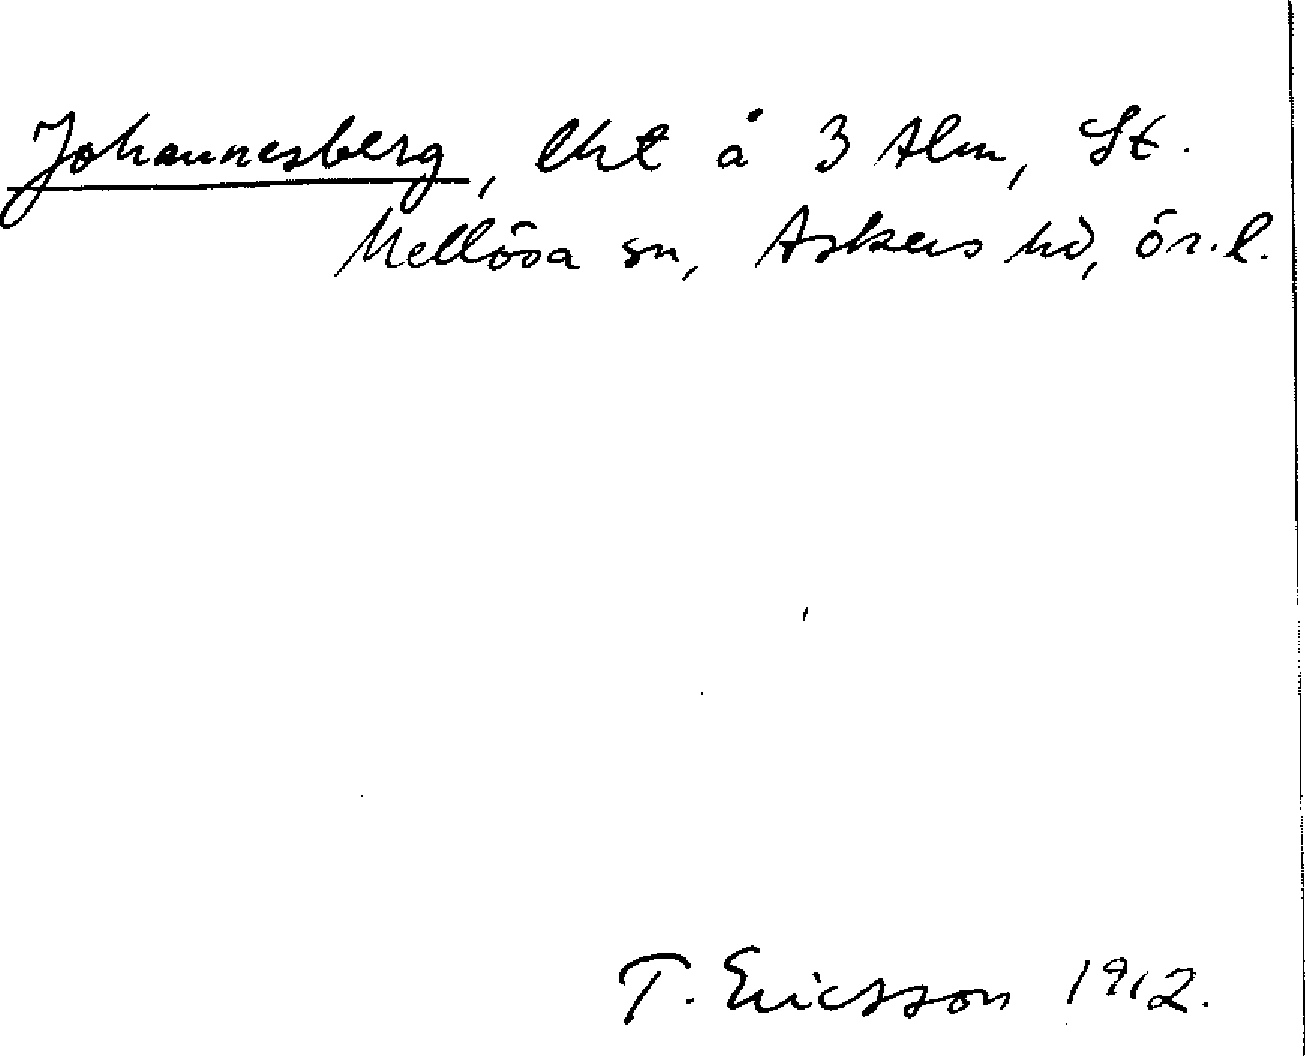 Johannesberg, lht å 3 Alm, St.
Mellösa sn, Askers hd, ör. l.
T. Ericsson 1912.